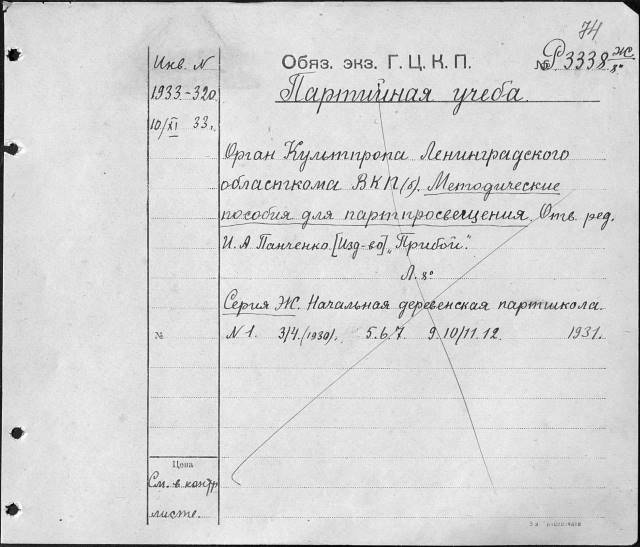 74
Инв. N
Обяз. экз. Г. Ц. К. П.
№ Р3338 Ж/8°
1933-320
Партийная учеба.
10/XI 33.
Орган Культпропа Ленинградского
областкома ВКП(б). Методические
пособия для партпросвещения. Отв. ред.
И. А. Панченко. [Изд-во] „Прибой".
Л. 8°
Серия Ж. Начальная деревенская партшкола.
№ N 1. 3/4. (1930). 5. 6. 7. 9. 10/11. 12. 1931.
Цена
См. в контр
листе.